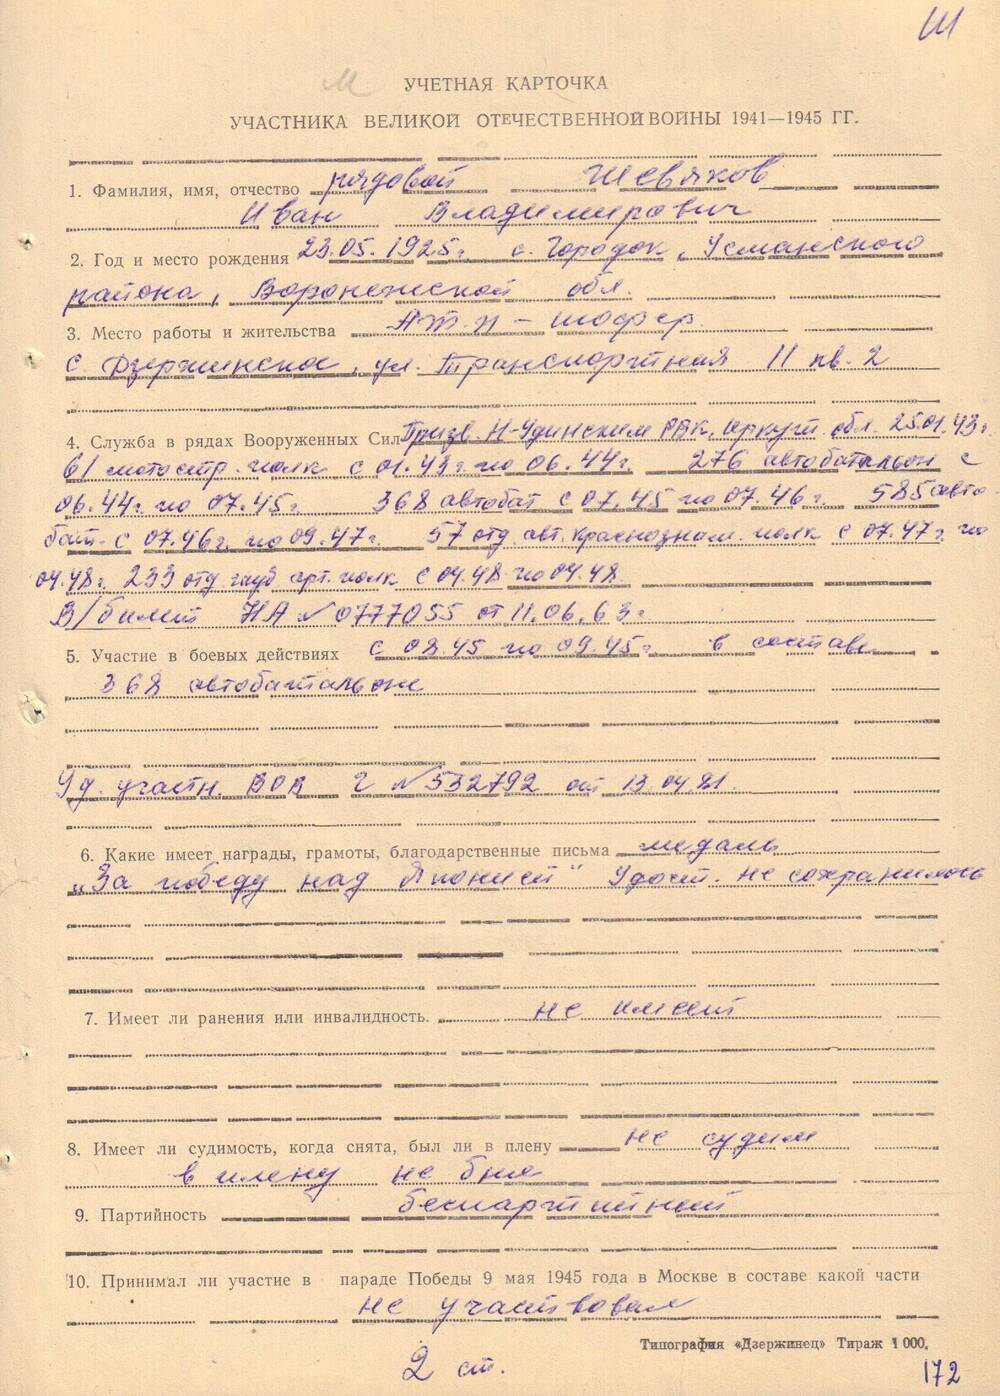 Ш
М
УЧЕТНАЯ КАРТОЧКА
УЧАСТНИКА ВЕЛИКОЙ ОТЕЧЕСТВЕННОЙ ВОЙНЫ 1941—1945 ГГ.
1. Фамилия, имя, отчество рядовой Шевяков
Иван Владимирович
2. Год и место рождения 23.05.1925г. с. Городок, Усманского
района, Воронежской обл.
3. Место работы и жительства АТП – шофер.
с. Дзержинское, ул. Транспортная 11 кв. 2
4. Служба в рядах Вооруженных Сил Призв. Н-Удинским РВК, Иркут. обл. 25.01.43г.
61 мотостр. полк с 01.43г. по 06.44г. 276 автобатальон с
06.44г. по 07.45г. 368 автобат с 07.45 по 07.46г. 585 авто-
бат- с 07.46г. по 09.47г. 57 отд. авт. краснознам. полк с 07.47г. по
04.48г. 233 отд. гауб. арт. полк с 04.48 по 04.48
В/билет НА № 0777055 от 11.06.63г.
5. Участие в боевых действиях с 08.45 по 09.45г. в составе
368 автобатальона
Уд. участн. ВОВ Г № 532792 от 13.04.81.
6. Какие имеет награды, грамоты, благодарственные письма медаль
„За победу над Японией" Удост. не сохранилось
7. Имеет ли ранения или инвалидность. не имеет
8. Имеет ли судимость, когда снята, был ли в плену не судим
в плену не был
9. Партийность беспартийный
10. Принимал ли участие в параде Победы 9 мая 1945 года в Москве в составе какой части
не участвовал
Типография «Дзержинец» Тираж 1 000.
2 ст.
172